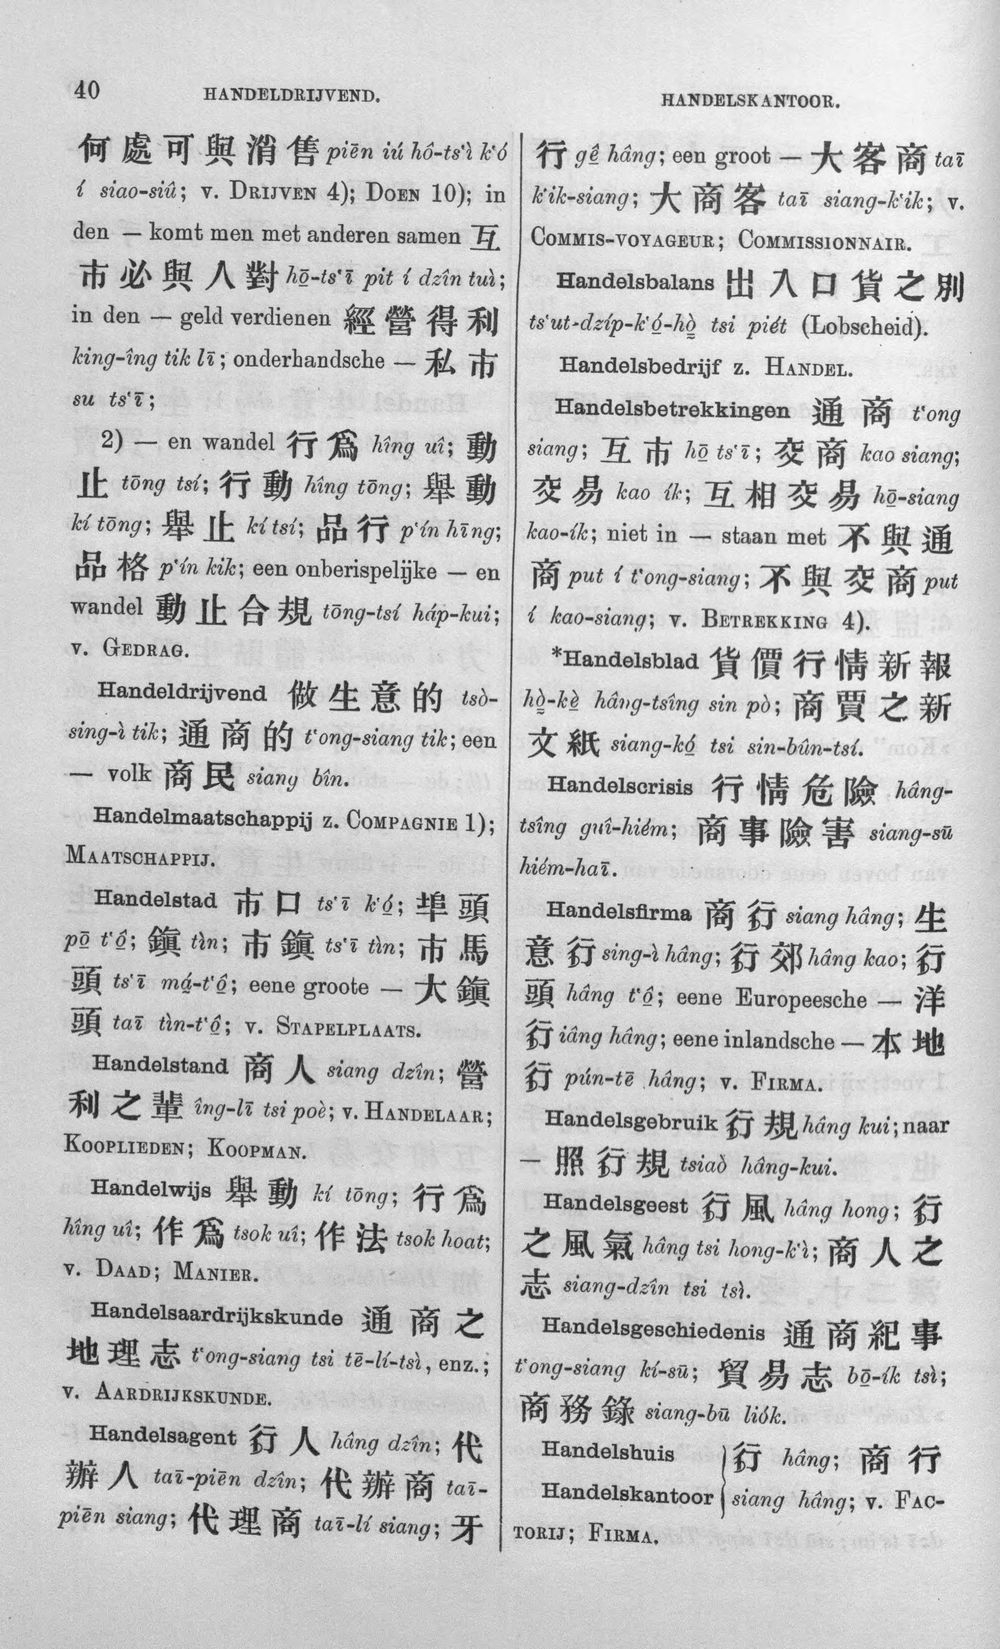 40
HANDELDRIJVEND.
HANDELSKANTOOR.
何處可與消售 piēn iú hô-ts‘ì k‘ó
í siao-siû; v. DRIJVEN 4); DOEN 10); in
den — komt men met anderen samen 互
市必與人對 hō̤-ts‘ī pit í dzîn tuì;
in den — geld verdienen 經營得利
king-îng tik lī; onderhandsche — 私市
su ts‘ī;
2) — en wandel 行爲 hîng uî; 動
止 tōng tsí; 行動 hîng tōng; 舉動
kí tōng; 舉止 kí tsí; 品行 p‘ín hīng;
品格 p‘ín kik; een onberispelijke — en
wandel 動止合規 tōng-tsí háp-kui;
v. GEDRAG.
Handeldrijvend 做生意的 tsò-
sing-ì tik; 通商的 t‘ong-siang tik; een
— volk 商民 siang bîn.
Handelmaatschappij z. COMPAGNIE 1);
MAATSCHAPPIJ.
Handelstad 市口 ts‘ī k‘ó̤; 埠頭
pō̤ t‘ô̤; 鎭 tìn; 市鎭 ts‘ī tìn; 市馬
頭 ts‘ī má̤-t‘ô̤; eene groote — 大鎭
頭 taī tìn-t‘ô̤; v. STAPELPLAATS.
Handelstand 商人 siang dzîn; 營
利之輩 îng-lī tsi poè; v. HANDELAAR;
KOOPLIEDEN; KOOPMAN.
Handelwijs 舉動 kí tōng; 行爲
hîng uî; 作爲 tsok uî; 作法 tsok hoat;
v. DAAD; MANIER.
Handelsaardrijkskunde 通商之
地理志 t‘ong-siang tsi tē-lí-tsì, enz.;
v. AARDRIJKSKUNDE.
Handelsagent 行人 hâng dzîn; 代
辦人 taī-piēn dzîn; 代辦商 taī-
piēn siang; 代理商 taī-lí siang; 牙
行 gê̤ hâng; een groot — 大客商 taī
k‘ik-siang; 大商客 taī siang-k‘ik; v.
COMMIS-VOYAGEUR; COMMISSIONNAIR.
Handelsbalans 出入口貨之別
ts‘ut-dzíp-k‘ó̤-hò̤ tsi piét (Lobscheid).
Handelsbedrijf z. HANDEL.
Handelsbetrekkingen 通商 t‘ong
siang; 互市 hō̤ ts‘ī; 交商 kao siang;
交易 kao ík; 互相交易 hō̤-siang
kao-ík; niet in — staan met 不與通
商 put í t‘ong-siang; 不與交商 put
í kao-siang; v. BETREKKING 4).
*Handelsblad 貨價行情新報
hò̤-kè̤ hâng-tsîng sin pò; 商賈之新
文紙 siang-kó̤ tsi sin-bûn-tsí.
Handelscrisis 行情危險 hâng-
tsîng guî-hiém; 商事險害 siang-sū
hiém-haī.
Handelsfirma 商行 siang hâng; 生
意行 sing-ì hâng; 行郊 hâng kao; 行
頭 hâng t‘ô̤; eene Europeesche — 洋
行 iâng hâng; eene inlandsche — 本地
行 pún-tē hâng; v. FIRMA.
Handelsgebruik 行規 hâng kui; naar
— 照行規 tsiaò hâng-kui.
Handelsgeest 行風 hâng hong; 行
之風氣 hâng tsi hong-k‘ì; 商人之
志 siang-dzîn tsi tsì.
Handelsgeschiedenis 通商紀事
t‘ong-siang kí-sū; 貿易志 bō̤-ík tsì;
商務錄 siang-bū liók.
Handelshuis } 行 hâng; 商行
Handelskantoor } siang hâng; v. FAC-
TORIJ; FIRMA.